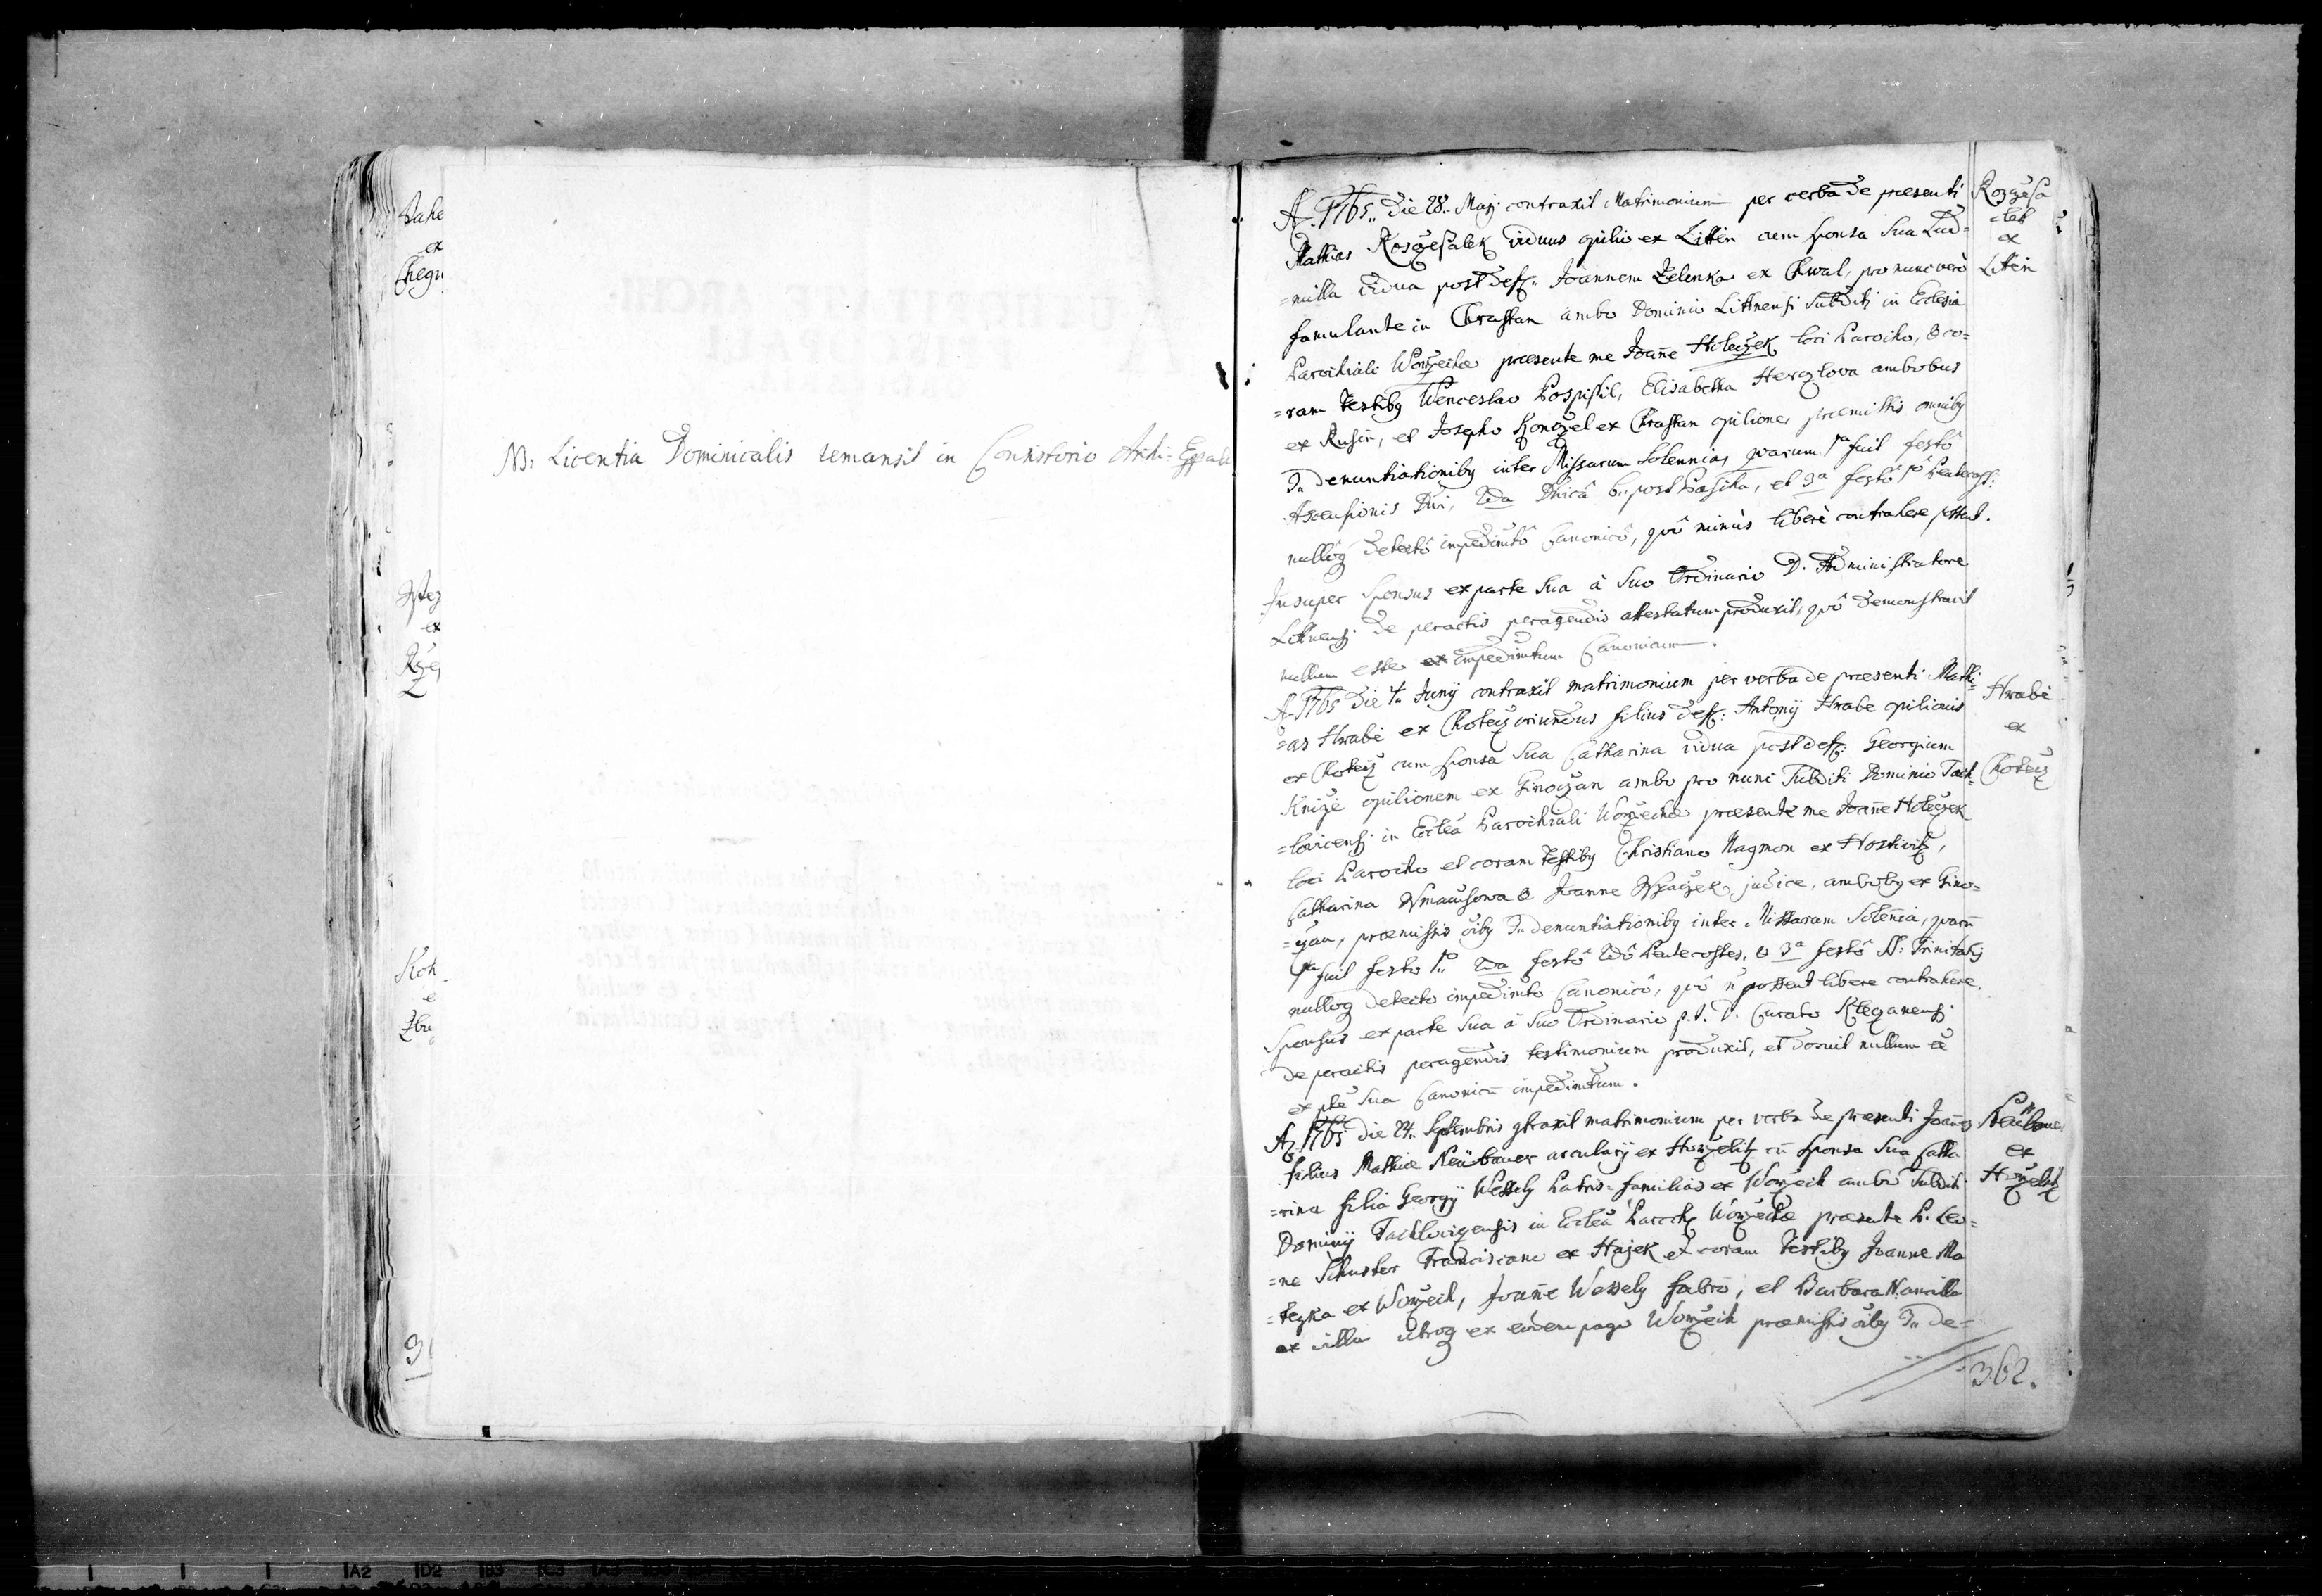 NB: Licentia Dominicalis remansit in Consistorio Archi-Eppali
A. 1765. Die 28. Maji contraxit Matrimonium per verba de praesenti
Mathias Rozgesalek viduus opilio ex Littin cum sponsa sua Lud=
=milla vidua post def. Joannem Zelenka ex Chwal, pro nunc vero
famulante in Chrastan ambo Dominio Littnensi subditi in Ecclesia
Parochiali Worzecha praesente me Joañe Holeczek loci Parocho, & co=
=ram testibg Wenceslao Pospissil, Elisabetha Herczlova ambobus
ex Rusin, et Josepho Konczel ex Chrastan opilione, praemissis omnibg
3 Denuntiationibg inter Missarum Solennia, quarum 1ma fuit festô
Ascensionis Dni, 2da Dnicâ 6. post Pascha, et 3a festô 1o Pentecost:
nullôq detectô impedimtô Canonicô, quô minùs liberè contrahere possent.
Insuper sponsus ex parte sua à suo Ordinario D. Administratore
Littnensi de peractis peragendis attestatum produxit, quô demonstravit
nullum esse impedimtum Canonicum.
Rozgesa
lek
ex
Littin
A. 1765 Die 4. Junij contraxit matrimonium per verba de praesenti Mathi=
=as Hrabě ex Chotecz oriundus filius def: Antonij Hrabe opilionis
ex Chotecz cum sponsa sua Catharina vidua post def: Georgium
Kniže opilionem ex Ginoczan ambo pro nunc subditi Dominio Tach=
=lovicensi in Ectea Parochiali Worzecha praesente me Joañe Holeczek
loci Parocho et coram testibg Christiano Nagmon ex Hostiwitz,
Catharina & Joanne judice, ambobg ex Gino=
=czan, praemissis oibg 3 denuntiationibg inter Missarum Soleñia, quarũ
1ma fuit festo 1o 2da festô 2dô Pentecostes, & 3a festô SS: Trinitatis
nulloq detecto impedimto Canonicô, quô ñ possent libere contrahere.
Sponsus ex parte sua à suo Ordinario p.t. D. Curato
de peractis peragendis testimonium produxit, et docuit nullum eẽ
ex pte sua Canonicũ impedimtum.
Hrabě
ex
Chotecz
A. 1765 die 24. Septembris contraxit matrimonium per verba de praesenti Joañes
filius Mathiae Neübauer arcularij ex Horzelitz cũ sponsa sua Catha
=rina filia Georgij Wessely Patris=familias ex Worzech ambo subditi
Dominij Tachlovicensis in Ectea Paroch: Worzecha praesente P. Leo=
=ne Schuster Franciscano ex Hajek et coram testibg Joanne Ma
=tegka ex Worzech, Joañe Wessely fabrô, et Barbara N. ancilla
ex villa utroq ex eodem pago Worzech praemissis oibg 3 De-
Neübauer
ex
Horzelitz
362.